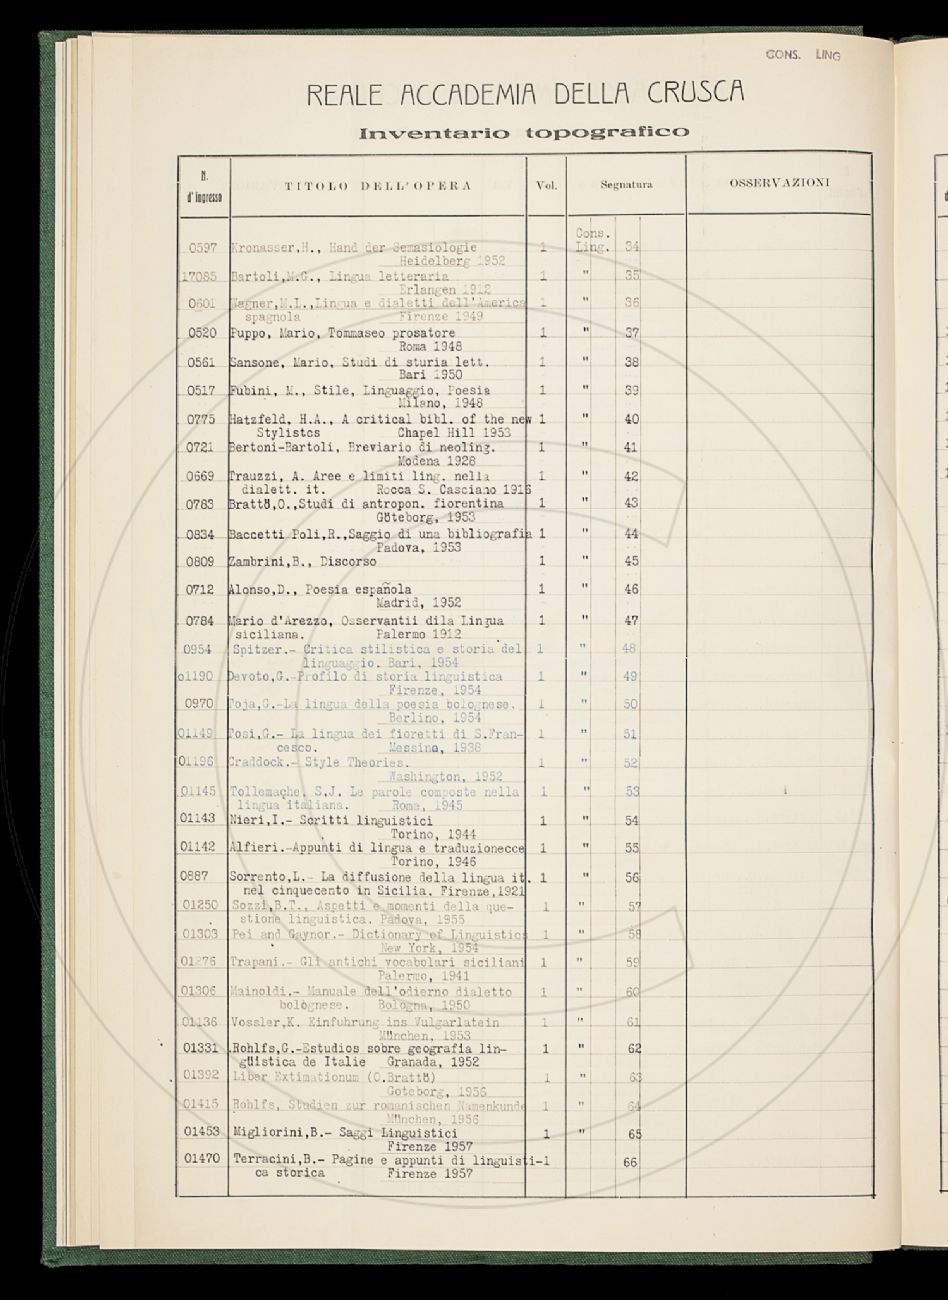 CONS. LING
REALE ACCADEMIA DELLA CRUSCA
Inventario topografico
N. d'ingresso TITOLO DELL'OPERA Vol. Segnatura OSSERVAZIONI
Cons.
0597 Kronasser,H., Hand der Semasiologie 1 Ling. 34
Heidelberg 1952
17085 Bartoli,M.G., Lingua letteraria 1 " 35
Erlangen 1912
0601 Wagner,M.L.,Lingua e dialetti dell'America 1 " 36
spagnola Firenze 1949
0520 Puppo, Mario, Tommaseo prosatore 1 " 37
Roma 1948
0561 Sansone, Mario, Studi di sturia lett. 1 " 38
Bari 1950
0517 Fubini, M., Stile, Linguaggio, Poesia 1 " 39
Milano, 1948
0775 Hatzfeld, H.A., A critical bibl. of the new 1 " 40
Stylistcs Chapel Hill 1953
0721 Bertoni-Bartoli, Breviario di neoling. 1 " 41
Modena 1928
0669 Trauzzi, A. Aree e limiti ling. nella 1 " 42
dialett. it. Rocca S. Casciano 1916
0783 Brattö,O.,Studi di antropon. fiorentina 1 " 43
Göteborg, 1953
0834 Baccetti Poli,R.,Saggio di una bibliografia 1 " 44
Padova, 1953
0809 Zambrini,B., Discorso 1 " 45
0712 Alonso,D., Poesia española 1 " 46
Madrid, 1952
0784 Mario d'Arezzo, Osservantii dila Lingua 1 " 47
siciliana. Palermo 1912
0954 Spitzer.- Critica stilistica e storia del 1 " 48
linguaggio. Bari, 1954
01190 Devoto,G.-Profilo di storia linguistica 1 " 49
Firenze, 1954
0970 Toja,G.-La lingua della poesia bolognese. 1 " 50
Berlino, 1954
01149 Tosi,G.- La lingua dei fioretti di S.Fran- 1 " 51
cesco. Messina, 1938
01196 Craddock.- Style Theories. 1 " 52
Washington, 1952
01145 Tollemache, S.J. Le parole composte nella 1 " 53
lingua italiana. Roma, 1945
01143 Nieri,I.- Scritti linguistici 1 " 54
Torino, 1944
01142 Alfieri.-Appunti di lingua e traduzionecce 1 " 55
Torino, 1946
0887 Sorrento,L.- La diffusione della lingua it. 1 " 56
nel cinquecento in Sicilia. Firenze,1921
01250 Sozzi,B.T., Aspetti e momenti della que- 1 " 57
stione linguistica. Padova, 1955
01303 Pei and Gaynor.- Dictionary of Linguistics 1 " 58
New York, 1954
01276 Trapani.- Gli antichi vocabolari siciliani 1 " 59
Palermo, 1941
01306 Mainoldi.- Manuale dell'odierno dialetto 1 " 60
bolognese. Bologna, 1950
01136 Vossler,K. Einfuhrung ins Vulgarlatein 1 " 61
München, 1953
01331 Rohlfs,G.-Estudios sobre geografia lin- 1 " 62
güistica de Italie Granada, 1952
01392 Liber Extimationum (O.Brattö) 1 " 63
Goteborg, 1956
01415 Rohlfs, Studien zur romanischen Namenkunde 1 " 64
München, 1956
01453 Migliorini,B.- Saggi Linguistici 1 " 65
Firenze 1957
01470 Terracini,B.- Pagine e appunti di linguisti-1 66
ca storica Firenze 1957